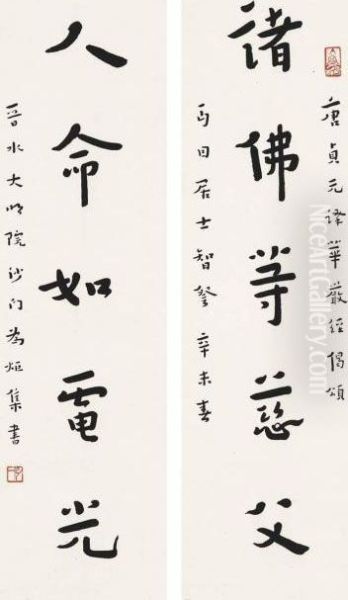 唐貞元譯華嚴經偈頌
諸佛等慈父
丏囙居士智詧辛未春
人命如電光
晉水大明院沙門為炬集書
NiceArtGallery.com